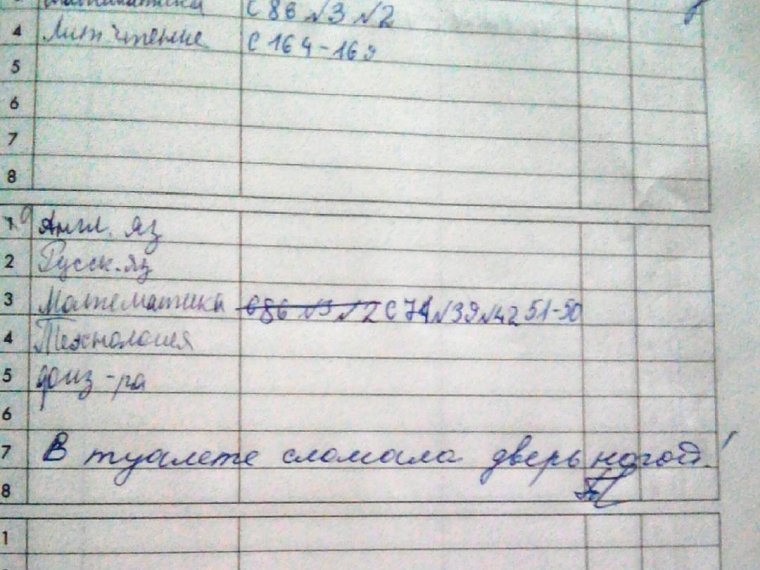 Математика С 86 №3 №2
4 Лит чтение С 164-169
5
6
7
8
1 Англ. яз
2 Русск. яз
3 Математика С86 №3 №2 С 74 №39 №42 51-50
4 Технология
5 физ-ра
6
7 В туалете сломала дверь ногой!
8
1